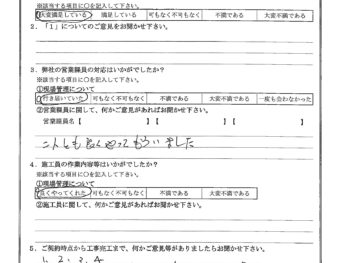 ※該当する項目に○を記入して下さい。
大変満足している 満足している 可もなく不可もなく 不満である 大変不満である
2．「1」についてのご意見をお聞かせ下さい。
3．弊社の営業騒員の対応はいかがでしたか？
※該当する項目に○を記入して下さい。
①現場管理について
行き届いていた 可もなく不可もなく 不満である 大変不満である 一度も会わなかった
②営業騒員に関して、何かご意見があればお聞かせ下さい。
営業騒員名【 】【 】【 】
もらいました
4．施工員の作業内容等はいかがでしたか？
※該当する項目に○を記入して下さい。
①現場管理について
良くやってくれた 可もなく不可もなく 不満である 大変不満である
②施工員に関して、何かご意見があればお聞かせ下さい。
5．ご契約時点から工事完工まで、何かご意見等がありましたらお聞かせ下さい。
1. 2. 3. 4